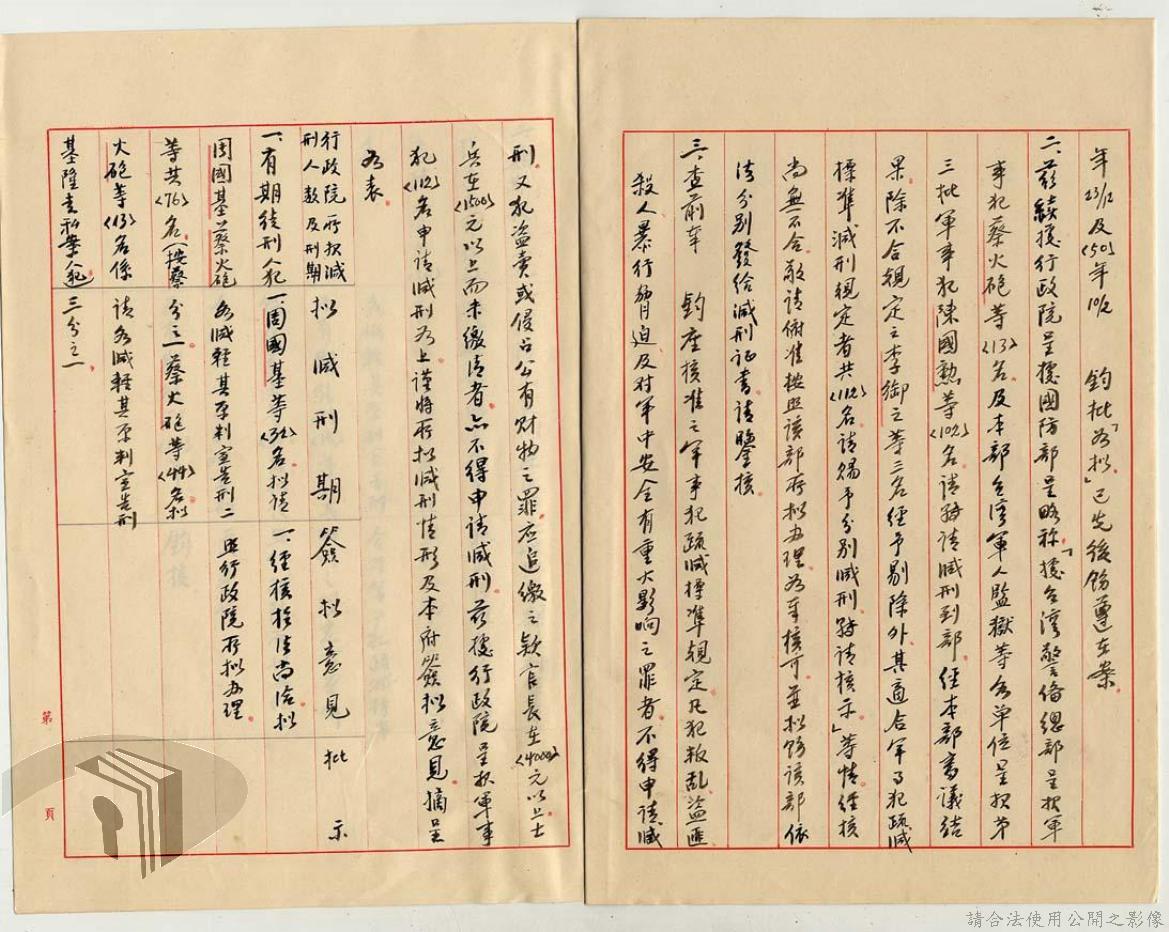 年23/12及(50)年10/2　鈞批「如擬」已先後飭遵在案
二、茲續據行政院呈據國防部呈略称「據台湾警俻總部呈报軍
事犯蔡火砲等(13)名及本部台湾軍人監獄等各單位呈报第
三批軍事犯陳國勲等(102)名請轉請減刑到部經本部審議結
果除不合規定之李御之等三名經予剔除外其適合軍事犯疏減
標準減刑規定者共(112)名請賜予分别減刑轉請核示」等情經核
尚無不合敬請俯准按照該部所拟办理如奉核可並拟飭該部依
法分别發给減刑证書請鑒核
三、查前奉　鈞座核准之軍事犯疏減標準規定凡犯叛乱盜匪
殺人暴行脅迫及对軍中安全有重大影响之罪者不得申請減
刑又犯盜卖或侵占公有财物之罪应追缴之欵官長在(4000)元以上士
兵在(1500)元以上而未缴清者亦不得申請減刑茲據行政院呈报軍事
犯(112)名申請減刑如上謹將所拟減刑情形及本府簽拟意見摘呈
如表
行政院所报減刑人数及刑期
拟減刑期
簽拟意見
批示
一、有期徒刑人犯
周國基蔡火砲
等共(76)名(按蔡
火砲等(13)名係
基隆走私案人犯
一、周國基等(32)名拟請
各減輕其原判宣告刑二
分之一蔡火砲等(44)名拟
請各減輕其原判宣告刑
三分之一
一、經核於法尚洽拟
照行政院所拟办理
第　頁
請合法使用公開之影像